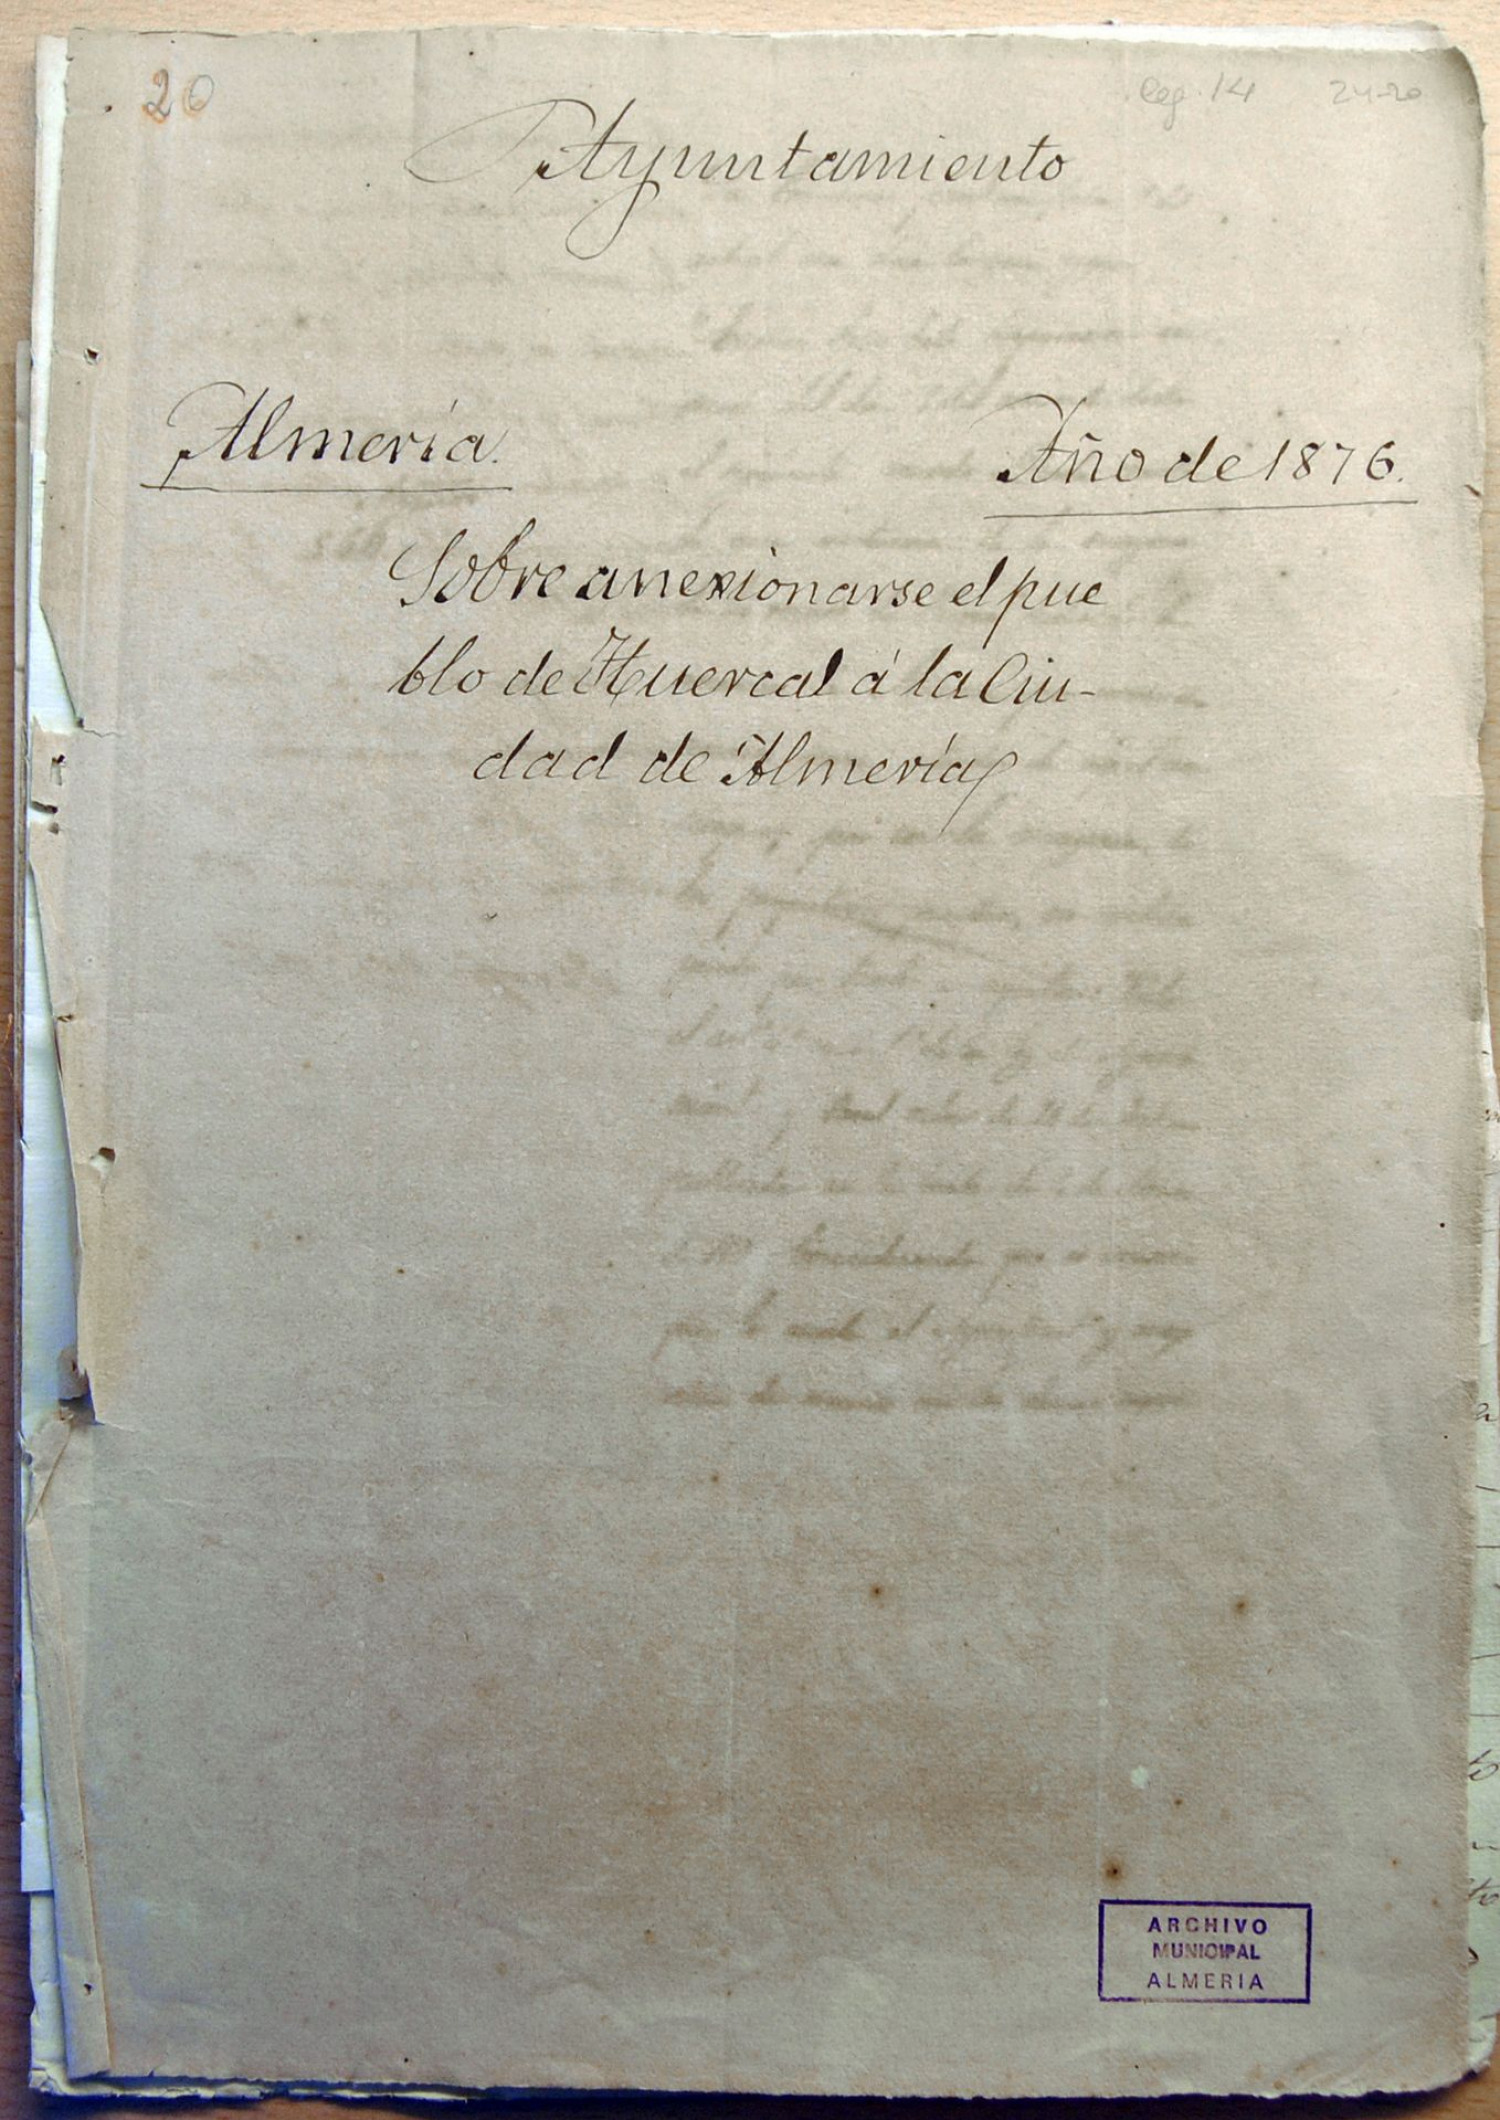 20
leg. 14 24-20
Ayuntamiento
Almería.
Año de 1876.
Sobre anexionarse el pue
blo de Huercal á la Ciu-
dad de Almería
ARCHIVO
MUNICIPAL
ALMERIA